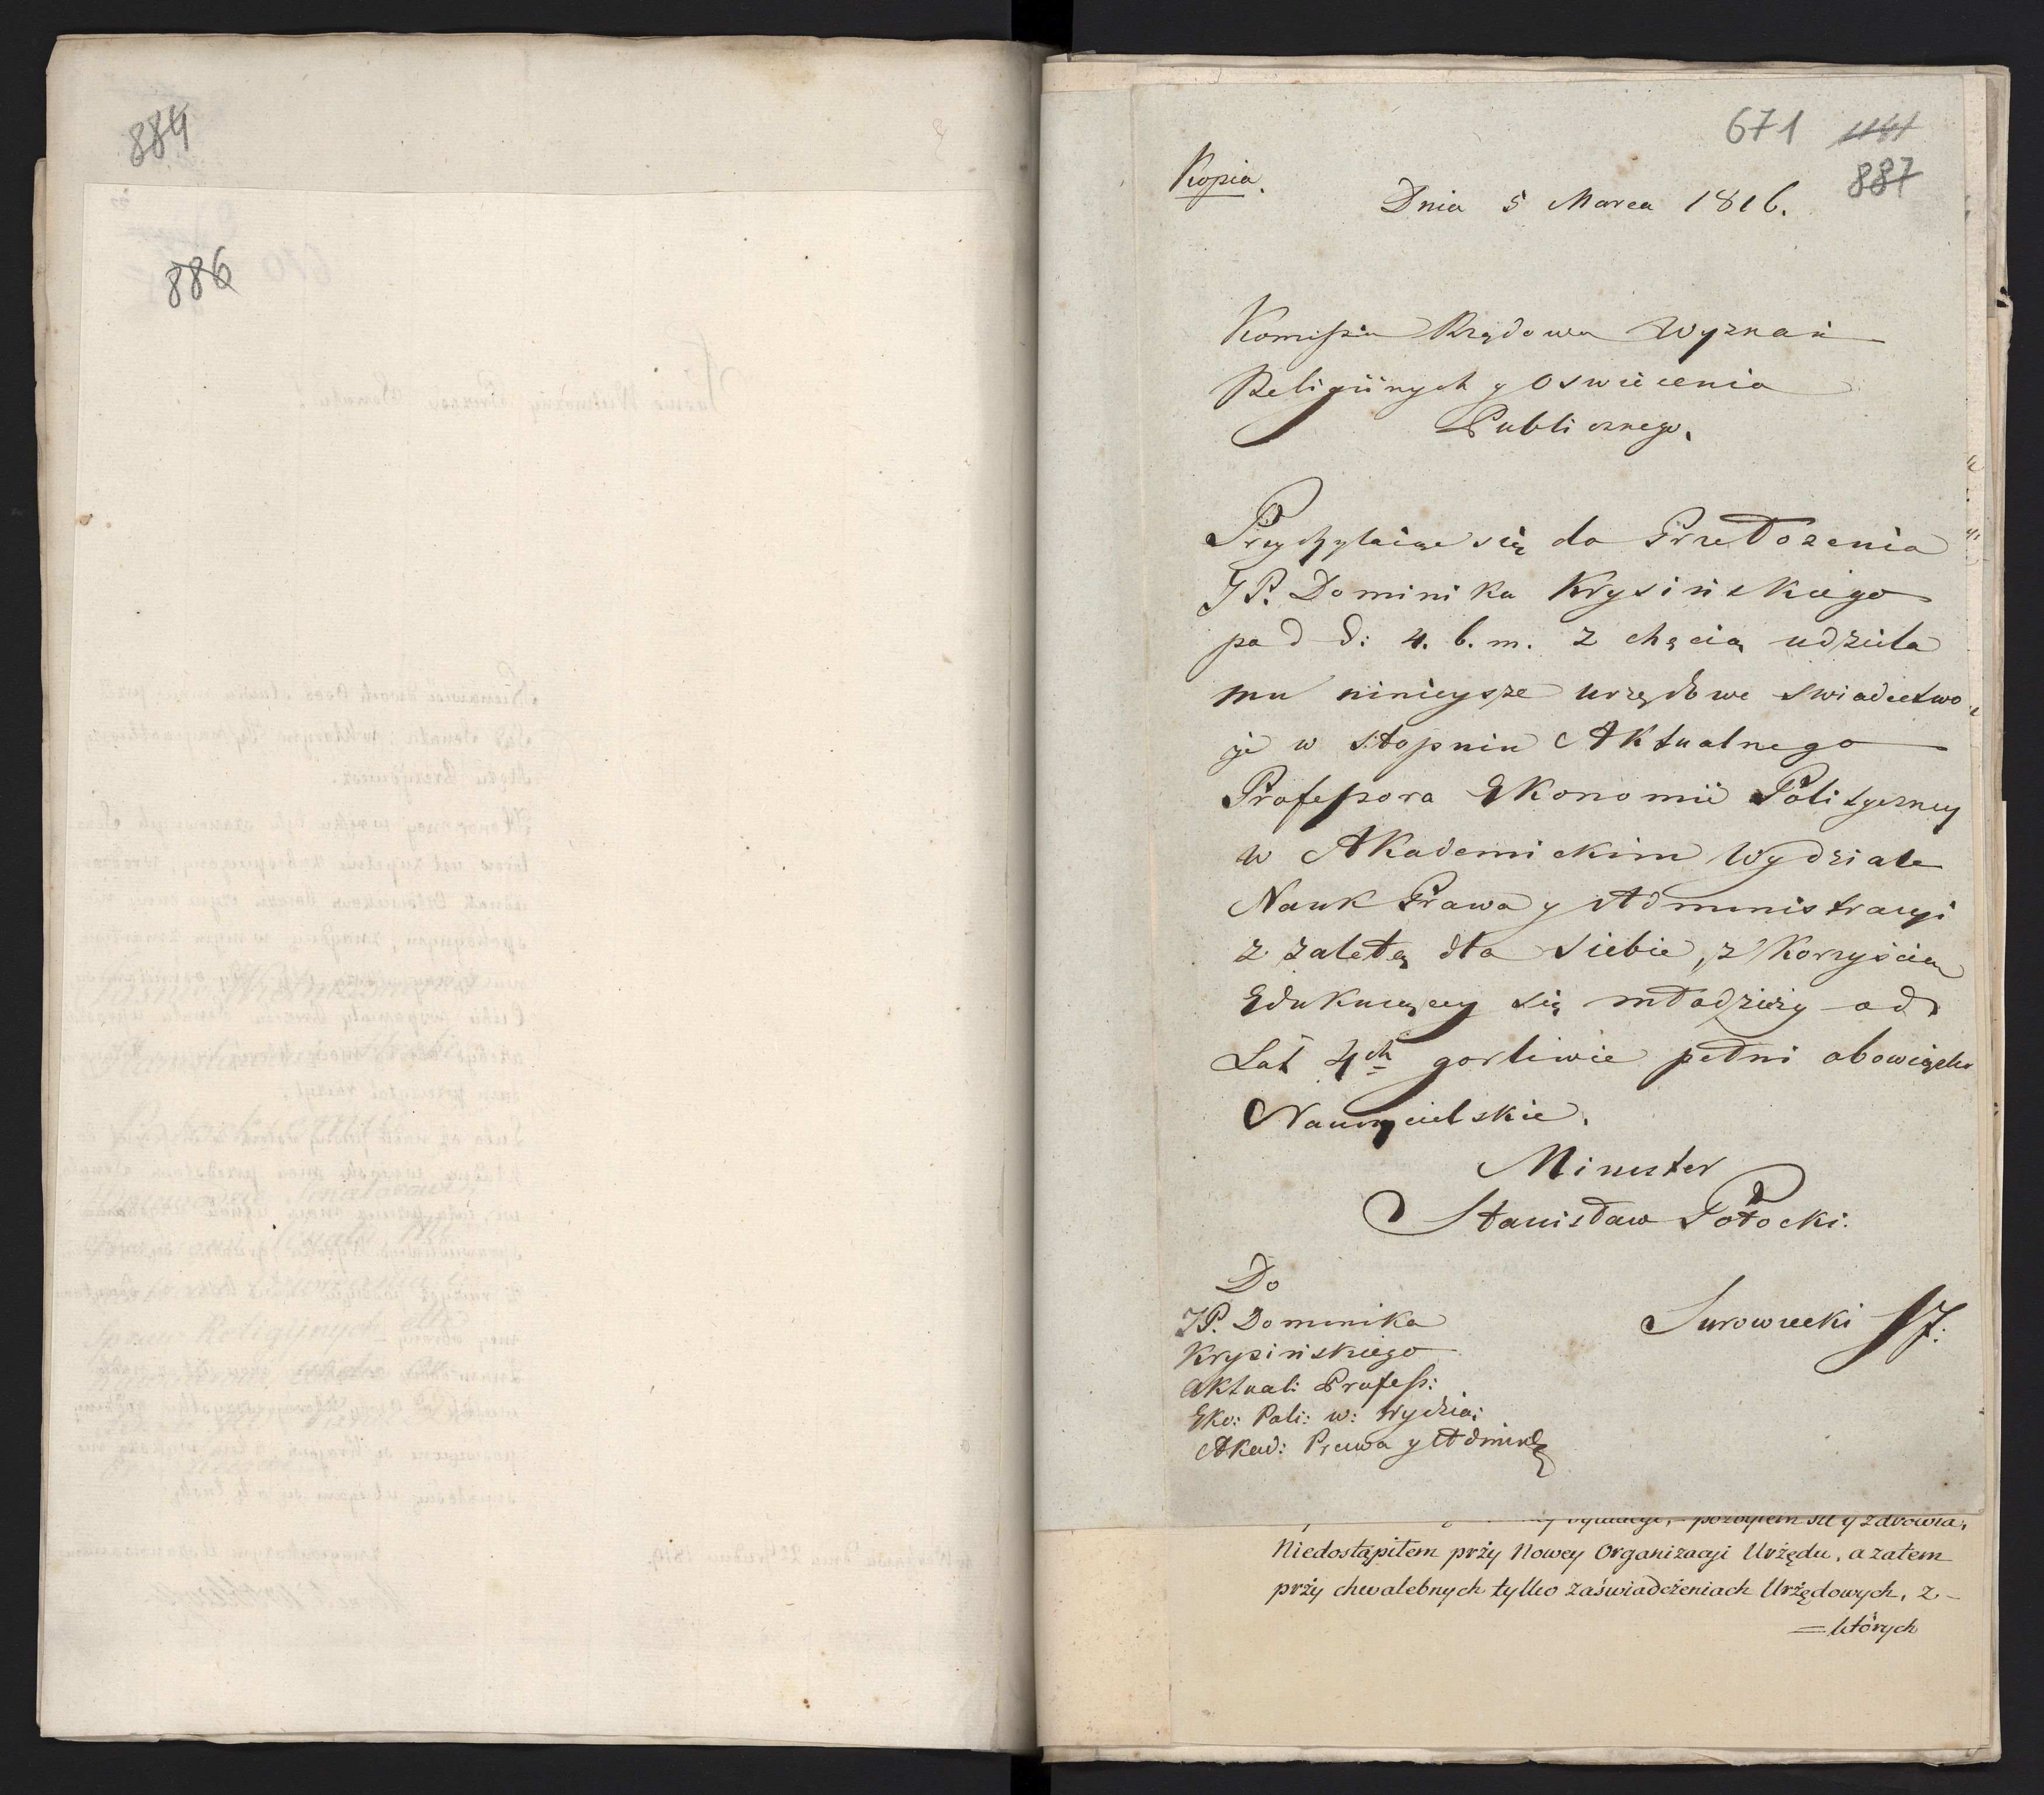 884
886
671 1141
887
Kopia.
Dnia 5 Marca 1816.
Komissia Rządowa Wyznań
Religiinych y Oswiecenia
Publicznego.
Przychylaiąc się do Przełozenia
JP. Dominika Krysińskiego
pod d: 4. b. m. z chęcią udziela
mu ninieysze urzędowe swiadectwo
że w stopniu Aktualnego
Professora Ekonomii Polityczney
w Akademickim Wydziale
Nauk Prawa y Administracyi
z zaletą dla siebie, z korzyścią
Edukuiącey się młodzieży od
Lat 4ch gorliwie pełni obowiązki
Nauczycielskie.
Minister
Stanisław Potocki.
Do
JP. Dominika
Krysińskiego
Aktual: Profess:
Eko: Poli: w: Wydzia:
Akad: Prawa y Admin:
Surowiecki SJ.
pozbyłem sił y zdrowia,
Niedostąpiłem przy Nowey Organizacyi Urzędu, a zatem
przy chwalebnych tylko zaświadczeniach Urzędowych, z-
=których